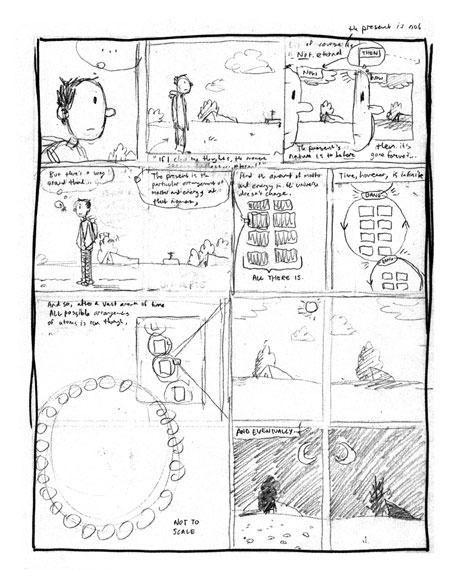 the present is not
of course
Not. eternal
THEN
NOW
NOW
"If I close my thoughts, the
The present's
nature is to be
then it's
gone forever...
But there's a way
around that...
The present is the
particular arrangement of
matter and energy at
that moment.
And the amount of matter
and energy in the universe
doesn't change.
ALL THERE IS.
Time, however, is infinite
BANG
And so, after a vast amount of time
ALL possible arrangements
of atoms is run through,
NOT TO
SCALE
AND EVENTUALLY...